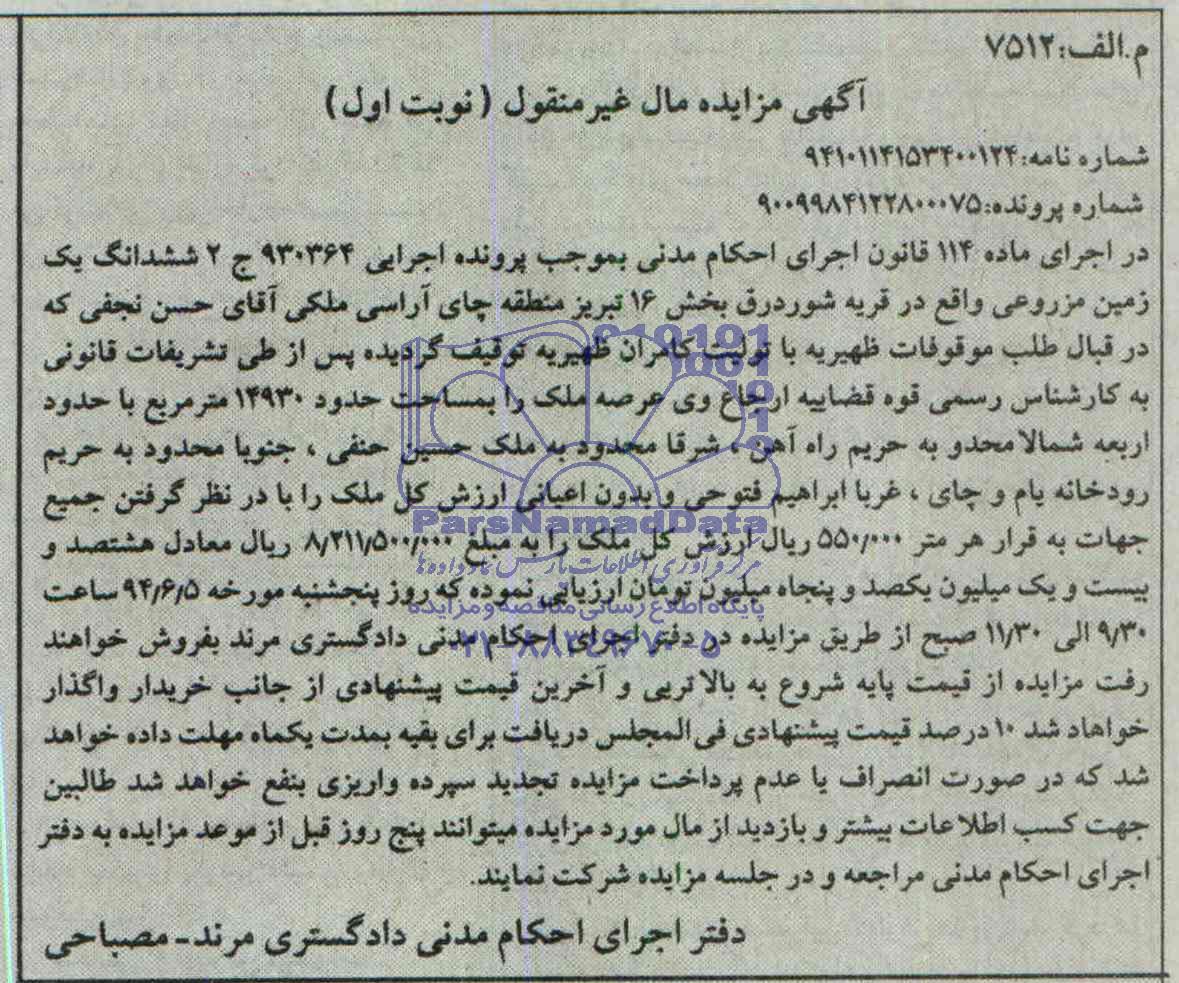 م.الف:۷۵۱۲
آگهی مزایده مال غیرمنقول (نوبت اول)
شماره نامه:۹۴۱۰۱۱۴۱۵۳۴۰۰۱۲۴
شماره پرونده:۹۰۰۹۹۸۴۱۲۲۸۰۰۰۷۵
در اجرای ماده ۱۱۴ قانون اجرای احکام مدنی بموجب پرونده اجرایی ۹۳۰۳۶۴ ج ۲ ششدانگ یک
زمین مزروعی واقع در قریه شوردرق بخش ۱۶ تبریز منطقه چای آراسی ملکی آقای حسن نجفی که
در قبال طلب موقوفات ظهیریه با تولیت کامران ظهیریه توقیف گردیده پس از طی تشریفات قانونی
به کارشناس رسمی قوه قضاییه ارجاع وی عرصه ملک را بمساحت حدود ۱۴۹۳۰ مترمربع با حدود
اربعه شمالا محدو به حریم راه آهن ، شرقا محدود به ملک حسین حنفی ، جنوبا محدود به حریم
رودخانه یام و چای ، غربا ابراهیم فتوحی و بدون اعیانی ارزش کل ملک را با در نظر گرفتن جمیع
جهات به قرار هر متر ۵۵۰/۰۰۰ ریال ارزش کل ملک را به مبلغ ۸/۲۱۱/۵۰۰/۰۰۰ ریال معادل هشتصد و
بیست و یک میلیون یکصد و پنجاه میلیون تومان ارزیابی نموده که روز پنجشنبه مورخه ۹۴/۶/۵ ساعت
۹/۳۰ الی ۱۱/۳۰ صبح از طریق مزایده در دفتر اجرای احکام مدنی دادگستری مرند بفروش خواهند
رفت مزایده از قیمت پایه شروع به بالاتریی و آخرین قیمت پیشنهادی از جانب خریدار واگذار
خواهاد شد ۱۰ درصد قیمت پیشنهادی فی‌المجلس دریافت برای بقیه بمدت یکماه مهلت داده خواهد
شد که در صورت انصراف یا عدم پرداخت مزایده تجدید سپرده واریزی بنفع خواهد شد طالبین
جهت کسب اطلاعات بیشتر و بازدید از مال مورد مزایده میتوانند پنج روز قبل از موعد مزایده به دفتر
اجرای احکام مدنی مراجعه و در جلسه مزایده شرکت نمایند.
دفتر اجرای احکام مدنی دادگستری مرند-مصباحی
ParsNamadData
مرکز فرآوری اطلاعات پارس نماد داده‌ها
پایگاه اطلاع رسانی مناقصه و مزایده